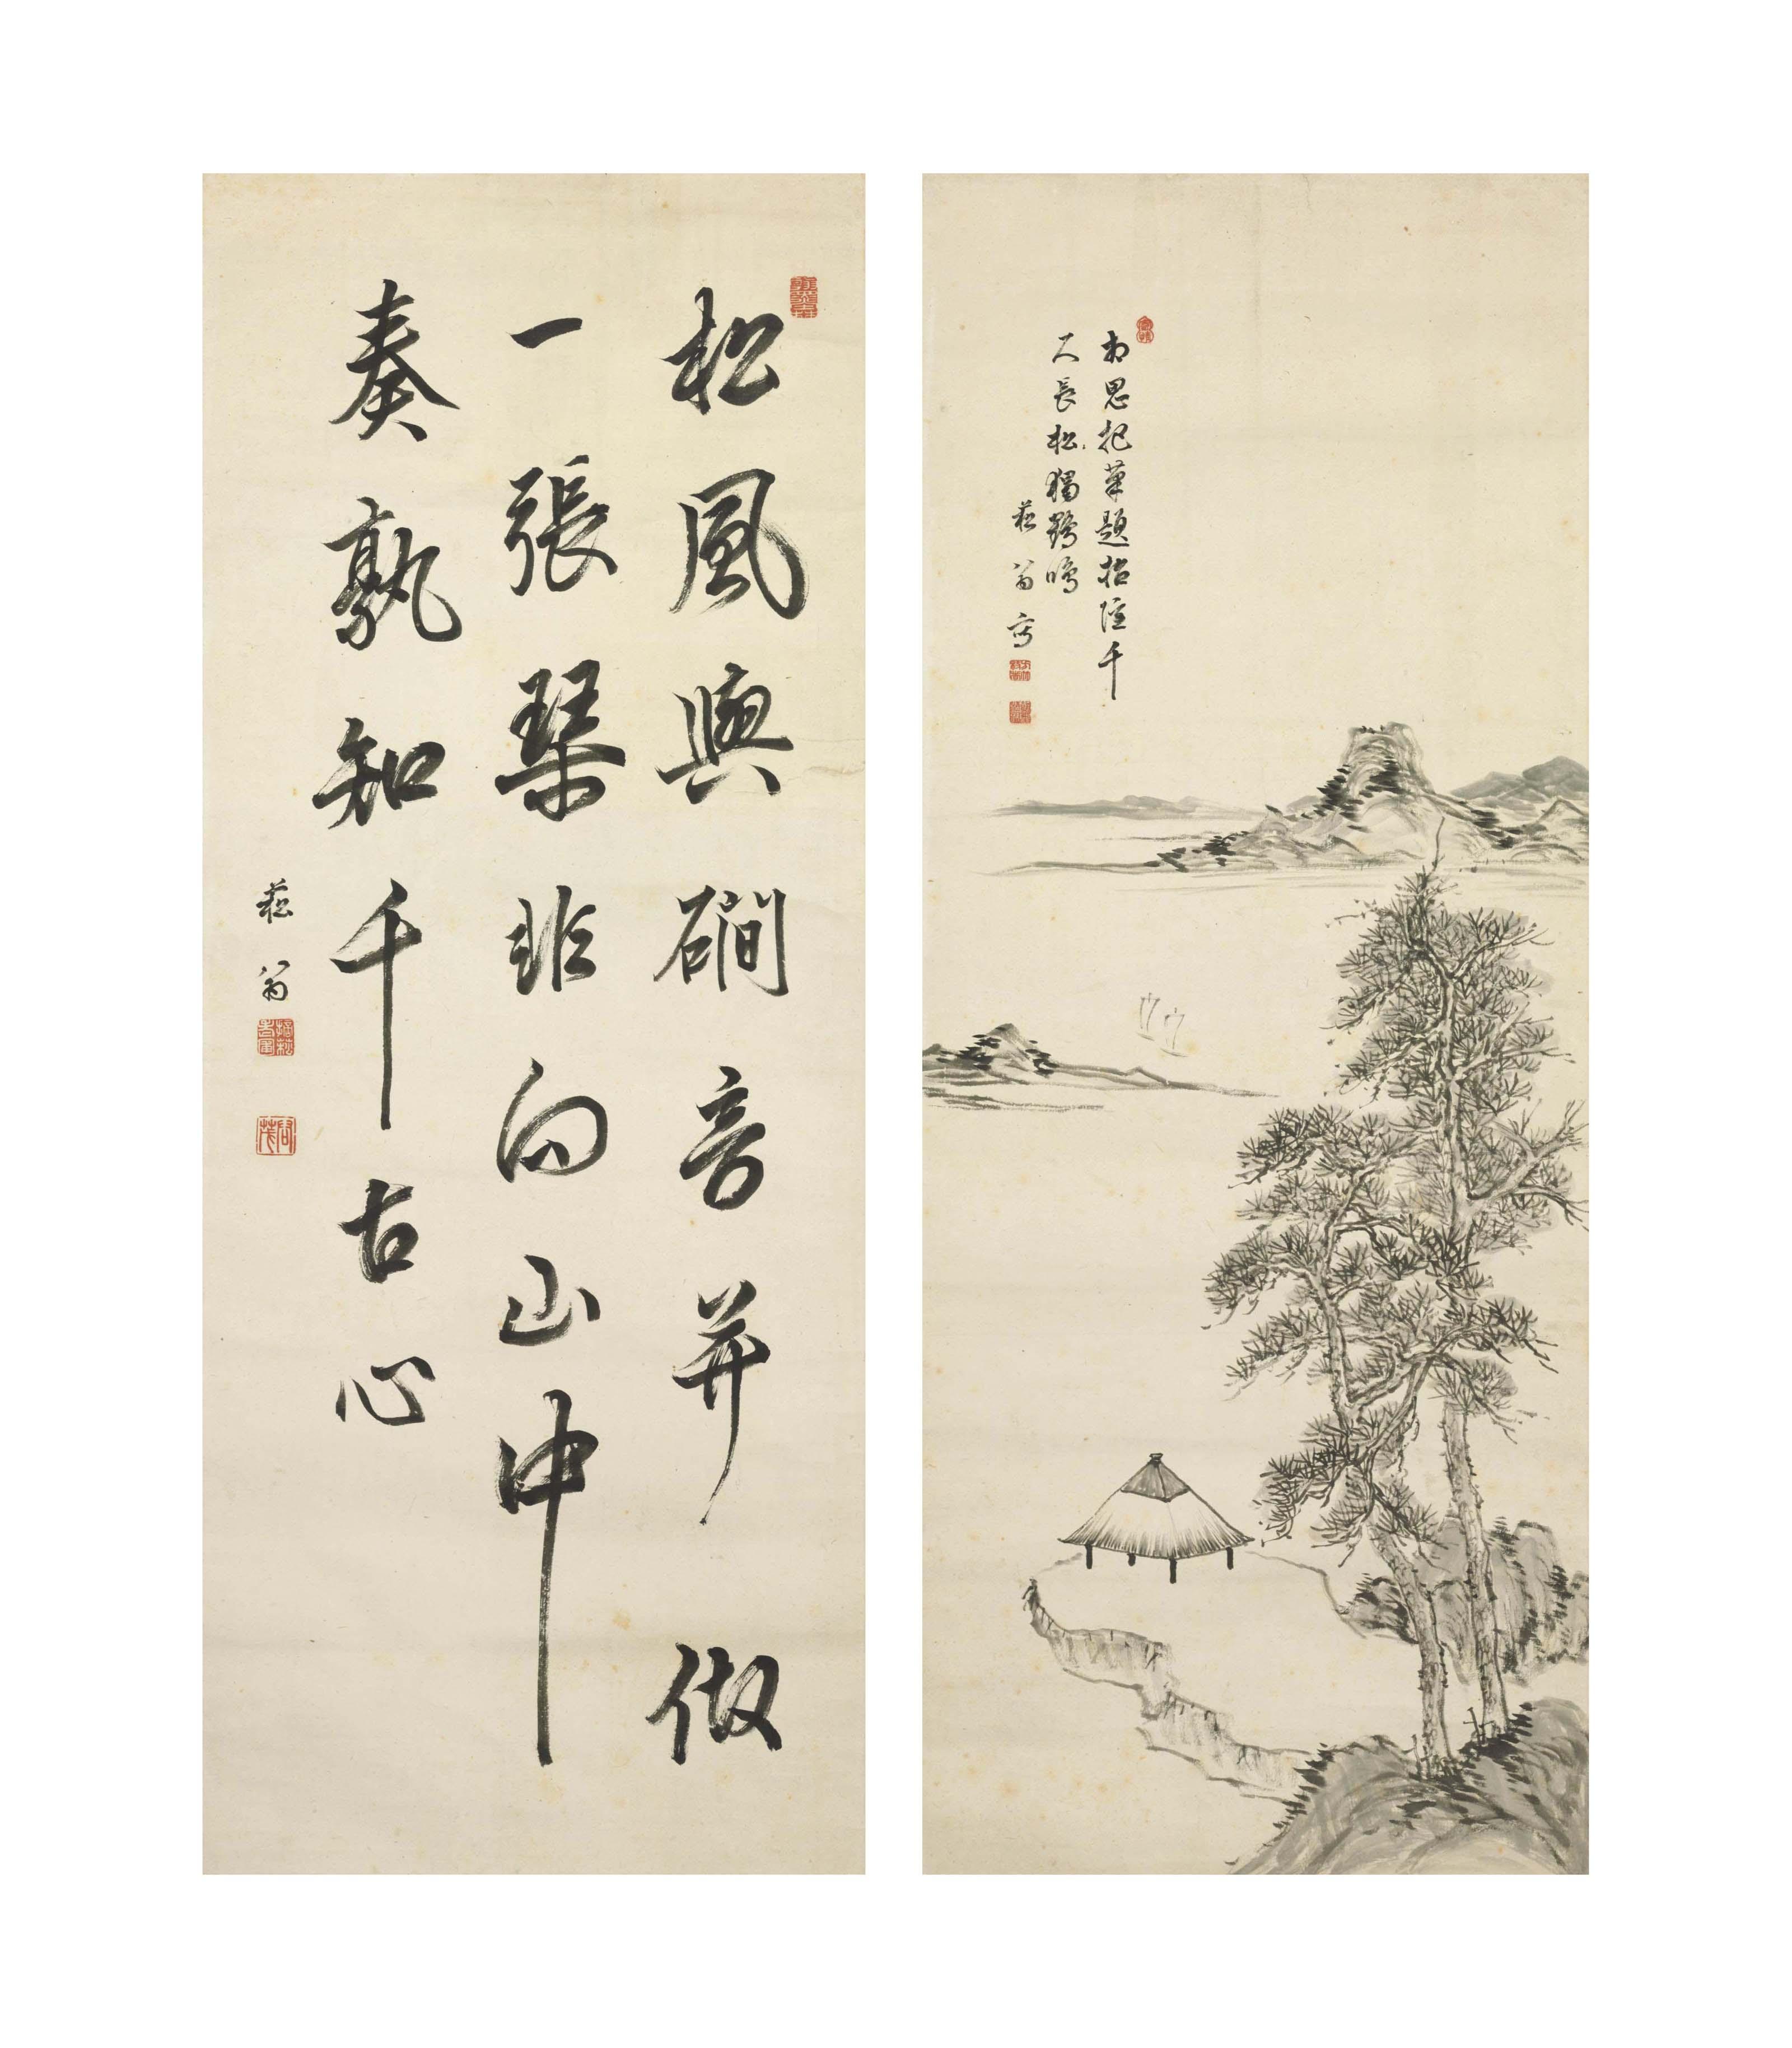 相思把筆題招隱千
尺長松獨鶴鳴
菘翁寫
松風與礀音并做
一張琴非向山中
奏孰知千古心
菘翁
君茂